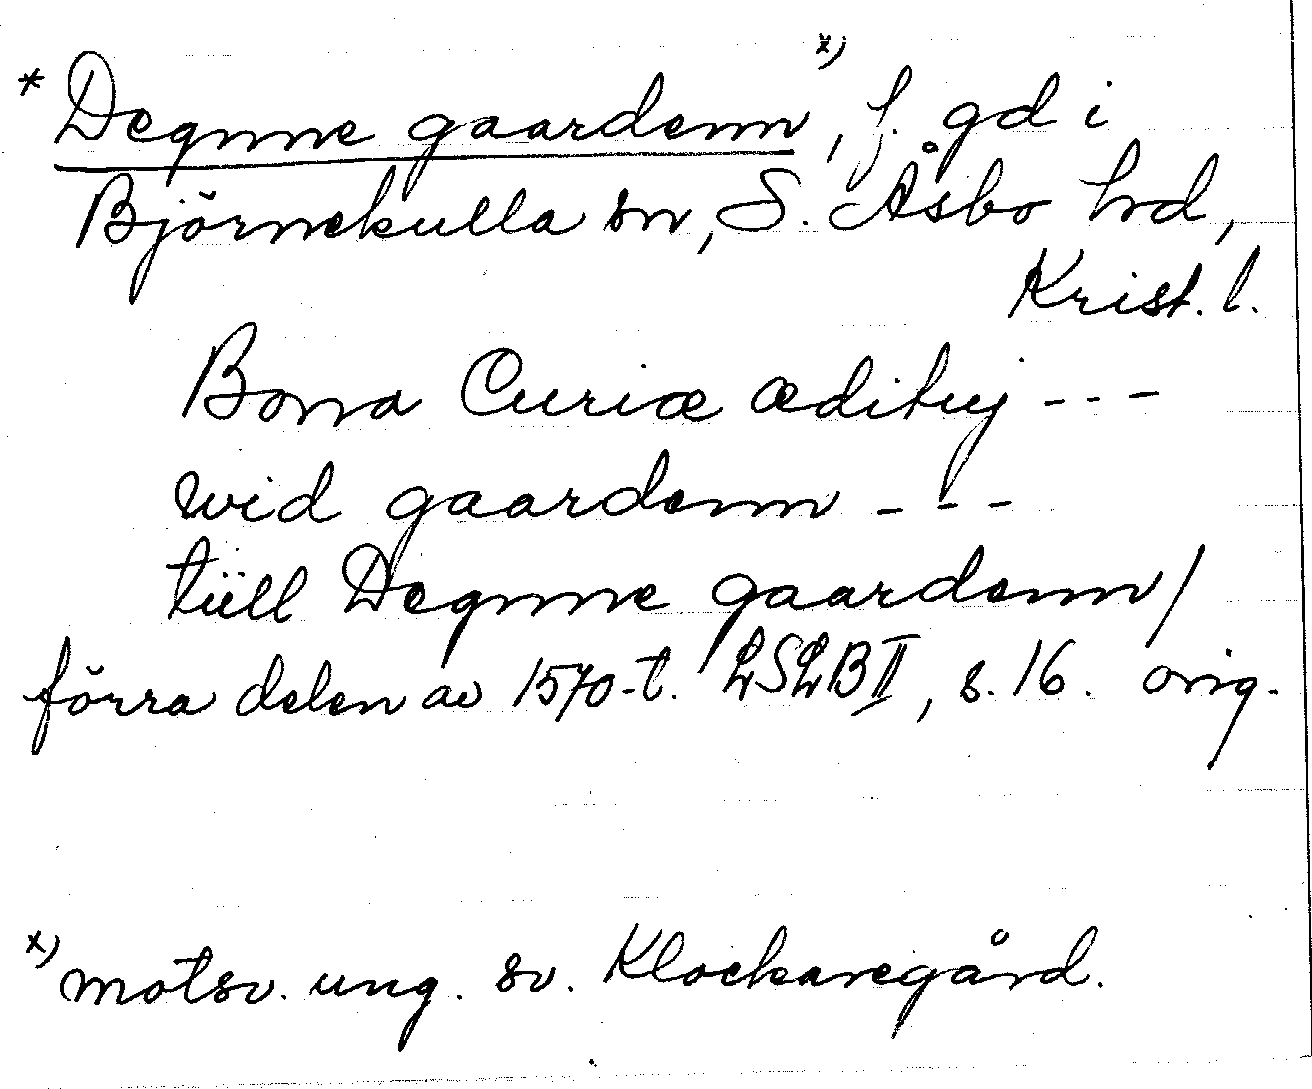 * Degnne gaardenn x), f. gd i
Björnekulla sn, S. Åsbo hd,
Krist. l.
Bona Curiæ ædituj ---
wid gaardenn ---
tüll Degnne gaardenn/
förra delen av 1570-t. LSLB II, s. 16. orig.
x) motsv. ung. sv. Klockaregård.